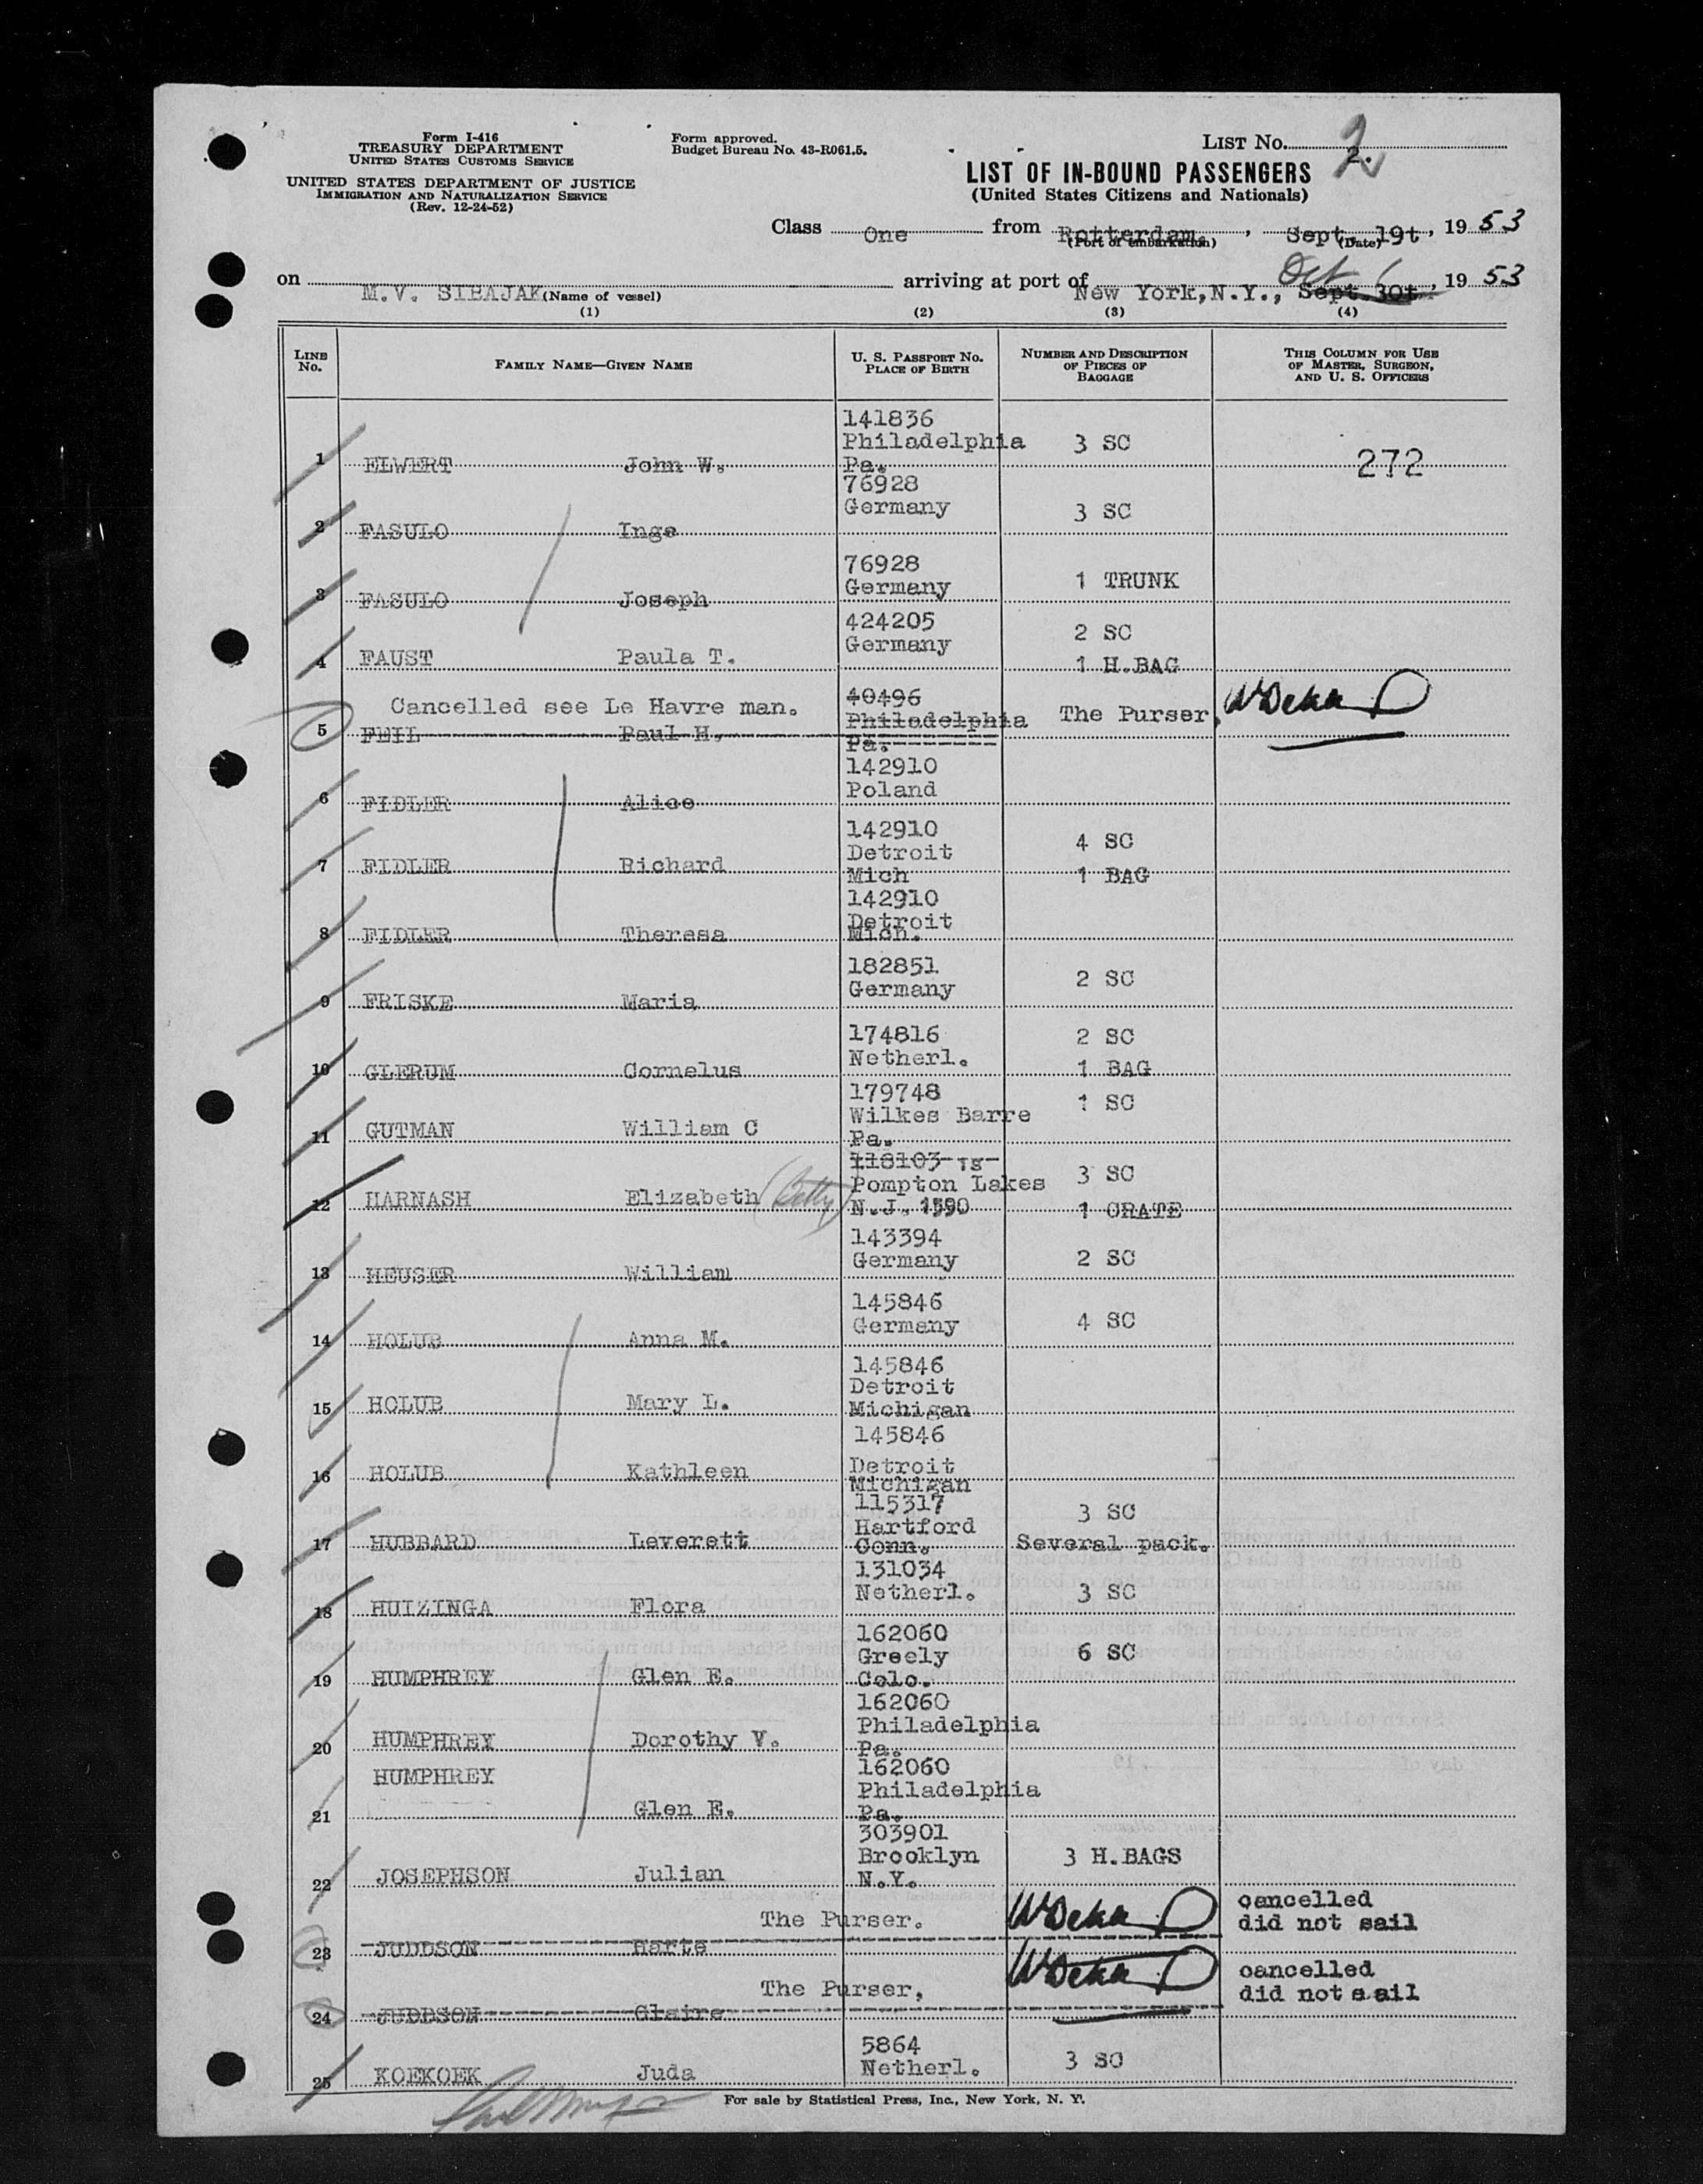 Form I-416
TREASURY DEPARTMENT
UNITED STATES CUSTOMS SERVICE
UNITED STATES DEPARTMENT OF JUSTICE
IMMIGRATION AND NATURALIZATION SERVICE
(Rev. 12-24-52)
Form approved.
Budget Bureau No. 43-R061.5.
LIST No. 2.
2
LIST OF IN-BOUND PASSENGERS
(United States Citizens and Nationals)
Class One from Rotterdam, (Port of embarkation), Sept. 19t (Date), 19 53
on M.V. SIBAJAK (Name of vessel) arriving at port of New York, N.Y., Sept. 30t Oct 1, 19 53
(1) (2) (3) (4)
LINE No. FAMILY NAME—GIVEN NAME U. S. PASSPORT NO. PLACE OF BIRTH NUMBER AND DESCRIPTION OF PIECES OF BAGGAGE THIS COLUMN FOR USE OF MASTER, SURGEON, AND U. S. OFFICERS
1 ELWERT John W. 141836 Philadelphia Pa. 3 SC 272
2 FASULO Inge 76928 Germany 3 SC
3 FASULO Joseph 76928 Germany 1 TRUNK
4 FAUST Paula T. 424205 Germany 2 SC 1 H.BAG
Cancelled see Le Havre man.
5 FEIL Paul H. 40496 Philadelphia Pa. The Purser,
6 FIDLER Alice 142910 Poland
7 FIDLER Richard 142910 Detroit Mich 4 SC 1 BAG
8 FIDLER Theresa 142910 Detroit Mich.
9 FRISKE Maria 182851 Germany 2 SC
10 GLERUM Cornelus 174816 Netherl. 2 SC 1 BAG
11 GUTMAN William C 179748 Wilkes Barre Pa. 1 SC
12 HARNASH Elizabeth (Betty) 118103 Pompton Lakes N.J. 3 SC 1 CRATE
13 HEUSER William 143394 Germany 2 SC
14 HOLUB Anna M. 145846 Germany 4 SC
15 HOLUB Mary L. 145846 Detroit Michigan
16 HOLUB Kathleen 145846 Detroit Michigan
17 HUBBARD Leverett 115317 Hartford Conn. 3 SC Several pack.
18 HUIZINGA Flora 131034 Netherl. 3 SC
19 HUMPHREY Glen E. 162060 Greely Colo. 6 SC
20 HUMPHREY Dorothy V. 162060 Philadelphia Pa.
21 HUMPHREY Glen E. 162060 Philadelphia Pa.
22 JOSEPHSON Julian 303901 Brooklyn N.Y. 3 H.BAGS
The Purser. cancelled did not sail
23 JUDDSON Harte
The Purser, cancelled did not sail
24 JUDDSON Claire
25 KOEKOEK Juda 5864 Netherl. 3 SC
For sale by Statistical Press, Inc., New York, N. Y.